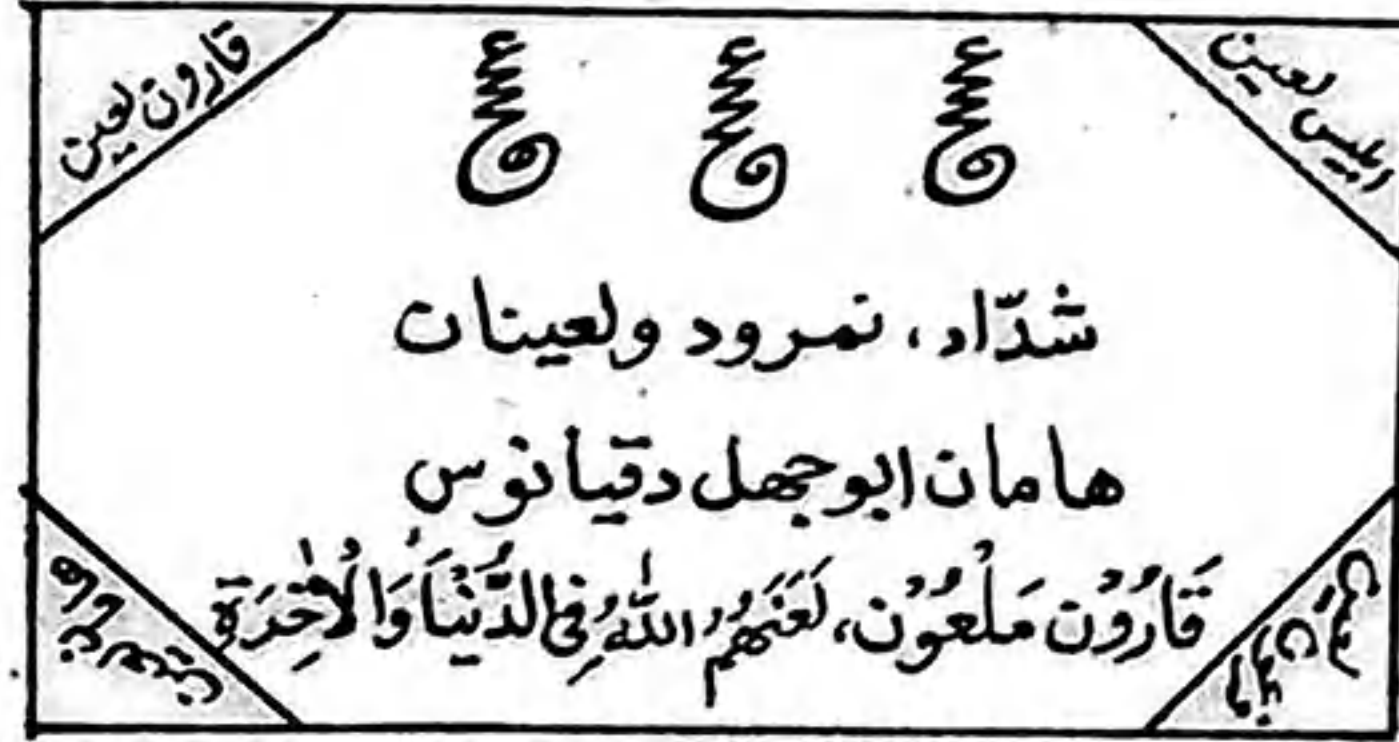 ابلیس لعین
قارون لعین
شدّاد، نمرود ولعینات
هامان ابوجهل دقیانوس
قَارُوْن مَلْعُوْن، لَعَنَهُمُ اللّٰهُ فِی الدُّنْیَا وَالْاٰخِرَةِ
هامان لعین